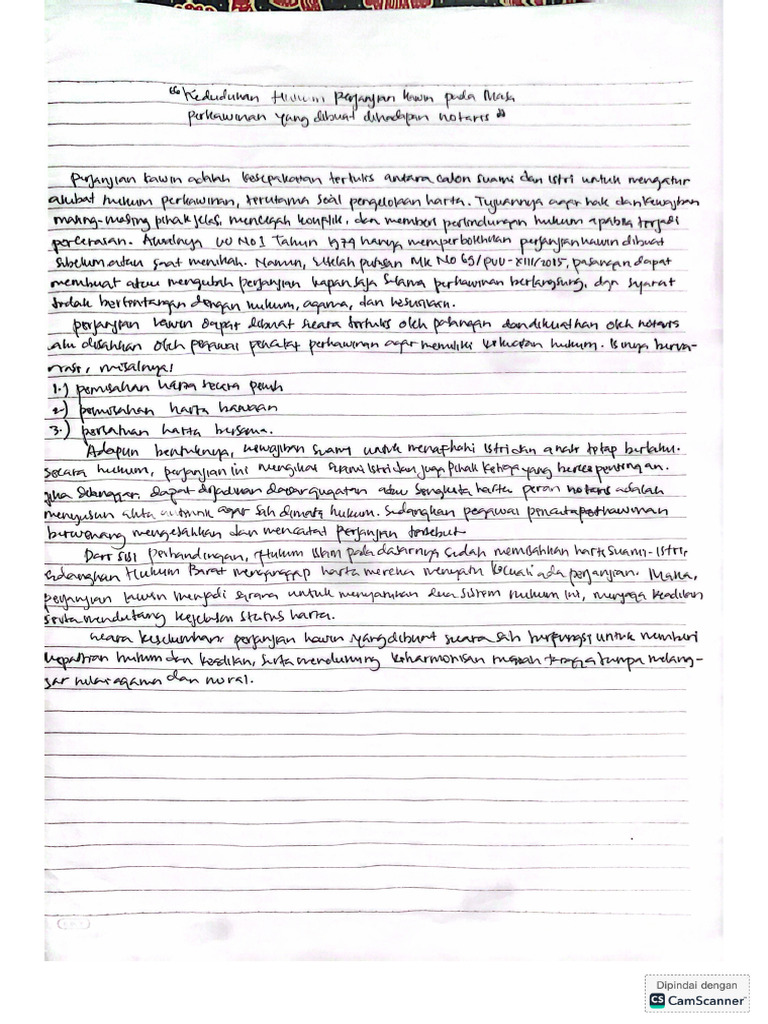 "Kedudukan Hukum Perjanjian Kawin pada Masa
perkawinan yang dibuat dihadapan notaris"
Perjanjian kawin adalah kesepakatan tertulis antara calon suami dan istri untuk mengatur
akibat hukum perkawinan, terutama soal pengelolaan harta. Tujuannya agar hak dan kewajiban
masing-masing pihak jelas, mencegah konflik, dan memberi perlindungan hukum apabila terjadi
perceraian. Awalnya UU No 1 Tahun 1974 hanya memperbolehkan perjanjian kawin dibuat
sebelum atau saat menikah. Namun, setelah putusan MK No 69/PUU-XIII/2015, pasangan dapat
membuat atau mengubah perjanjian kapan saja selama perkawinan berlangsung, dgn syarat
tidak bertentangan dengan hukum, agama, dan kesusilaan.
perjanjian kawin dapat dibuat secara tertulis oleh pasangan dan dikuatkan oleh notaris
lalu disahkan oleh pegawai pencatat perkawinan agar memiliki kekuatan hukum. Isinya berva-
riasi, misalnya:
1.) pemisahan harta secara penuh
2.) pemisahan harta bawaan
3.) persatuan harta bersama.
Adapun bentuknya, kewajiban suami untuk menafkahi istri dan anak tetap berlaku.
Secara hukum, perjanjian ini mengikat suami istri dan juga pihak ketiga yang berkepentingan.
jika dilanggar, dapat dijadikan dasar gugatan atau sengketa harta. peran notaris adalah
menyusun akta autentik agar sah dimata hukum. Sedangkan pegawai pencatat perkawinan
berwenang mengesahkan dan mencatat perjanjian tersebut
Dari sisi perbandingan, Hukum Islam pada dasarnya sudah memisahkan harta suami-istri,
sedangkan Hukum Barat menganggap harta mereka menyatu kecuali ada perjanjian. Maka,
perjanjian kawin menjadi sarana untuk menyatukan dua sistem hukum ini, menjaga keadilan
serta mendukung kejelasan status harta.
Secara keseluruhan perjanjian kawin yang dibuat secara sah berfungsi untuk memberi
kepastian hukum dan keadilan, serta mendukung keharmonisan rumah tangga tanpa melang-
gar nilai agama dan moral.
Dipindai dengan
CS CamScanner